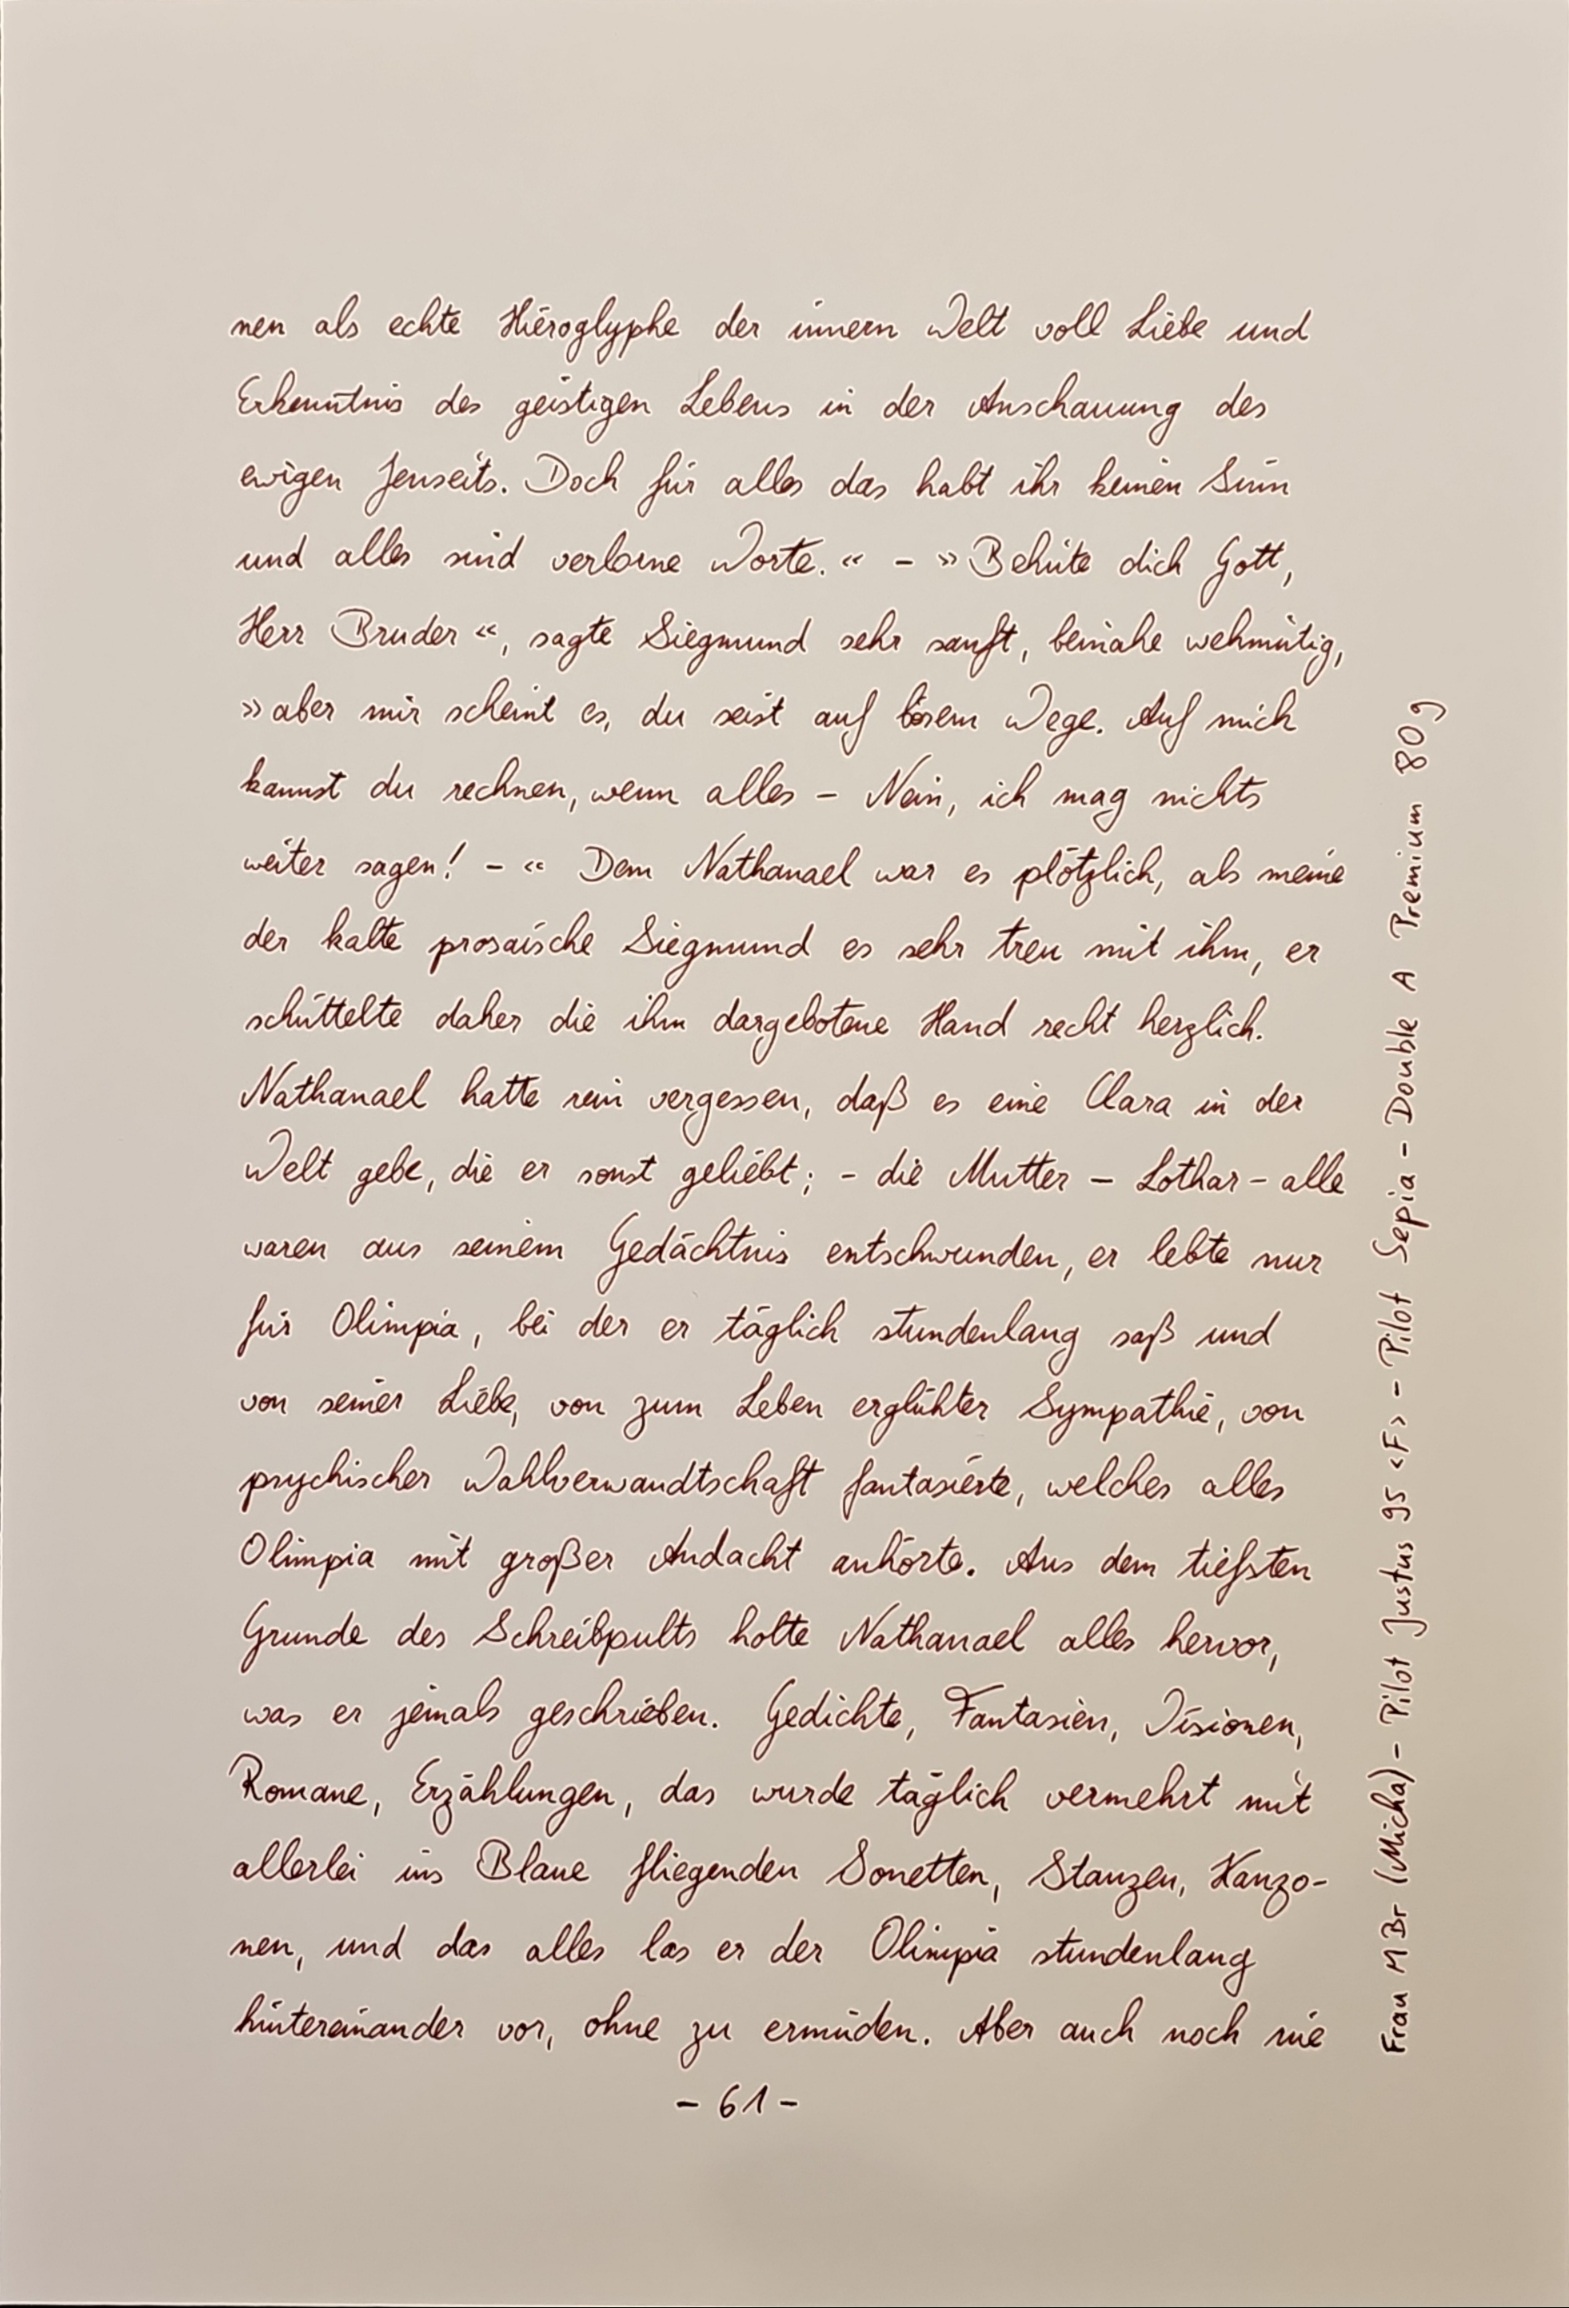 nen als echte Hieroglyphe der innern Welt voll Liebe und
Erkenntnis des geistigen Lebens in der Anschauung des
ewigen Jenseits. Doch für alles das habt ihr keinen Sinn
und alles sind verlorne Worte.« – »Behüte dich Gott,
Herr Bruder«, sagte Siegmund sehr sanft, beinahe wehmütig,
»aber mir scheint es, du seist auf bösem Wege. Auf mich
kannst du rechnen, wenn alles – Nein, ich mag nichts
weiter sagen! –« Dem Nathanael war es plötzlich, als meine
der kalte prosaische Siegmund es sehr treu mit ihm, er
schüttelte daher die ihm dargebotene Hand recht herzlich.
Nathanael hatte rein vergessen, daß es eine Clara in der
Welt gebe, die er sonst geliebt; – die Mutter – Lothar – alle
waren aus seinem Gedächtnis entschwunden, er lebte nur
für Olimpia, bei der er täglich stundenlang saß und
von seiner Liebe, von zum Leben erglühter Sympathie, von
psychischer Wahlverwandtschaft fantasierte, welches alles
Olimpia mit großer Andacht anhörte. Aus dem tiefsten
Grunde des Schreibpults holte Nathanael alles hervor,
was er jemals geschrieben. Gedichte, Fantasien, Visionen,
Romane, Erzählungen, das wurde täglich vermehrt mit
allerlei ins Blaue fliegenden Sonetten, Stanzen, Kanzo-
nen, und das alles las er der Olimpia stundenlang
hintereinander vor, ohne zu ermüden. Aber auch noch nie
– 61 –
Frau MBr (Micha) – Pilot Justus 95 <F> – Pilot Sepia – Double A Premium 80g